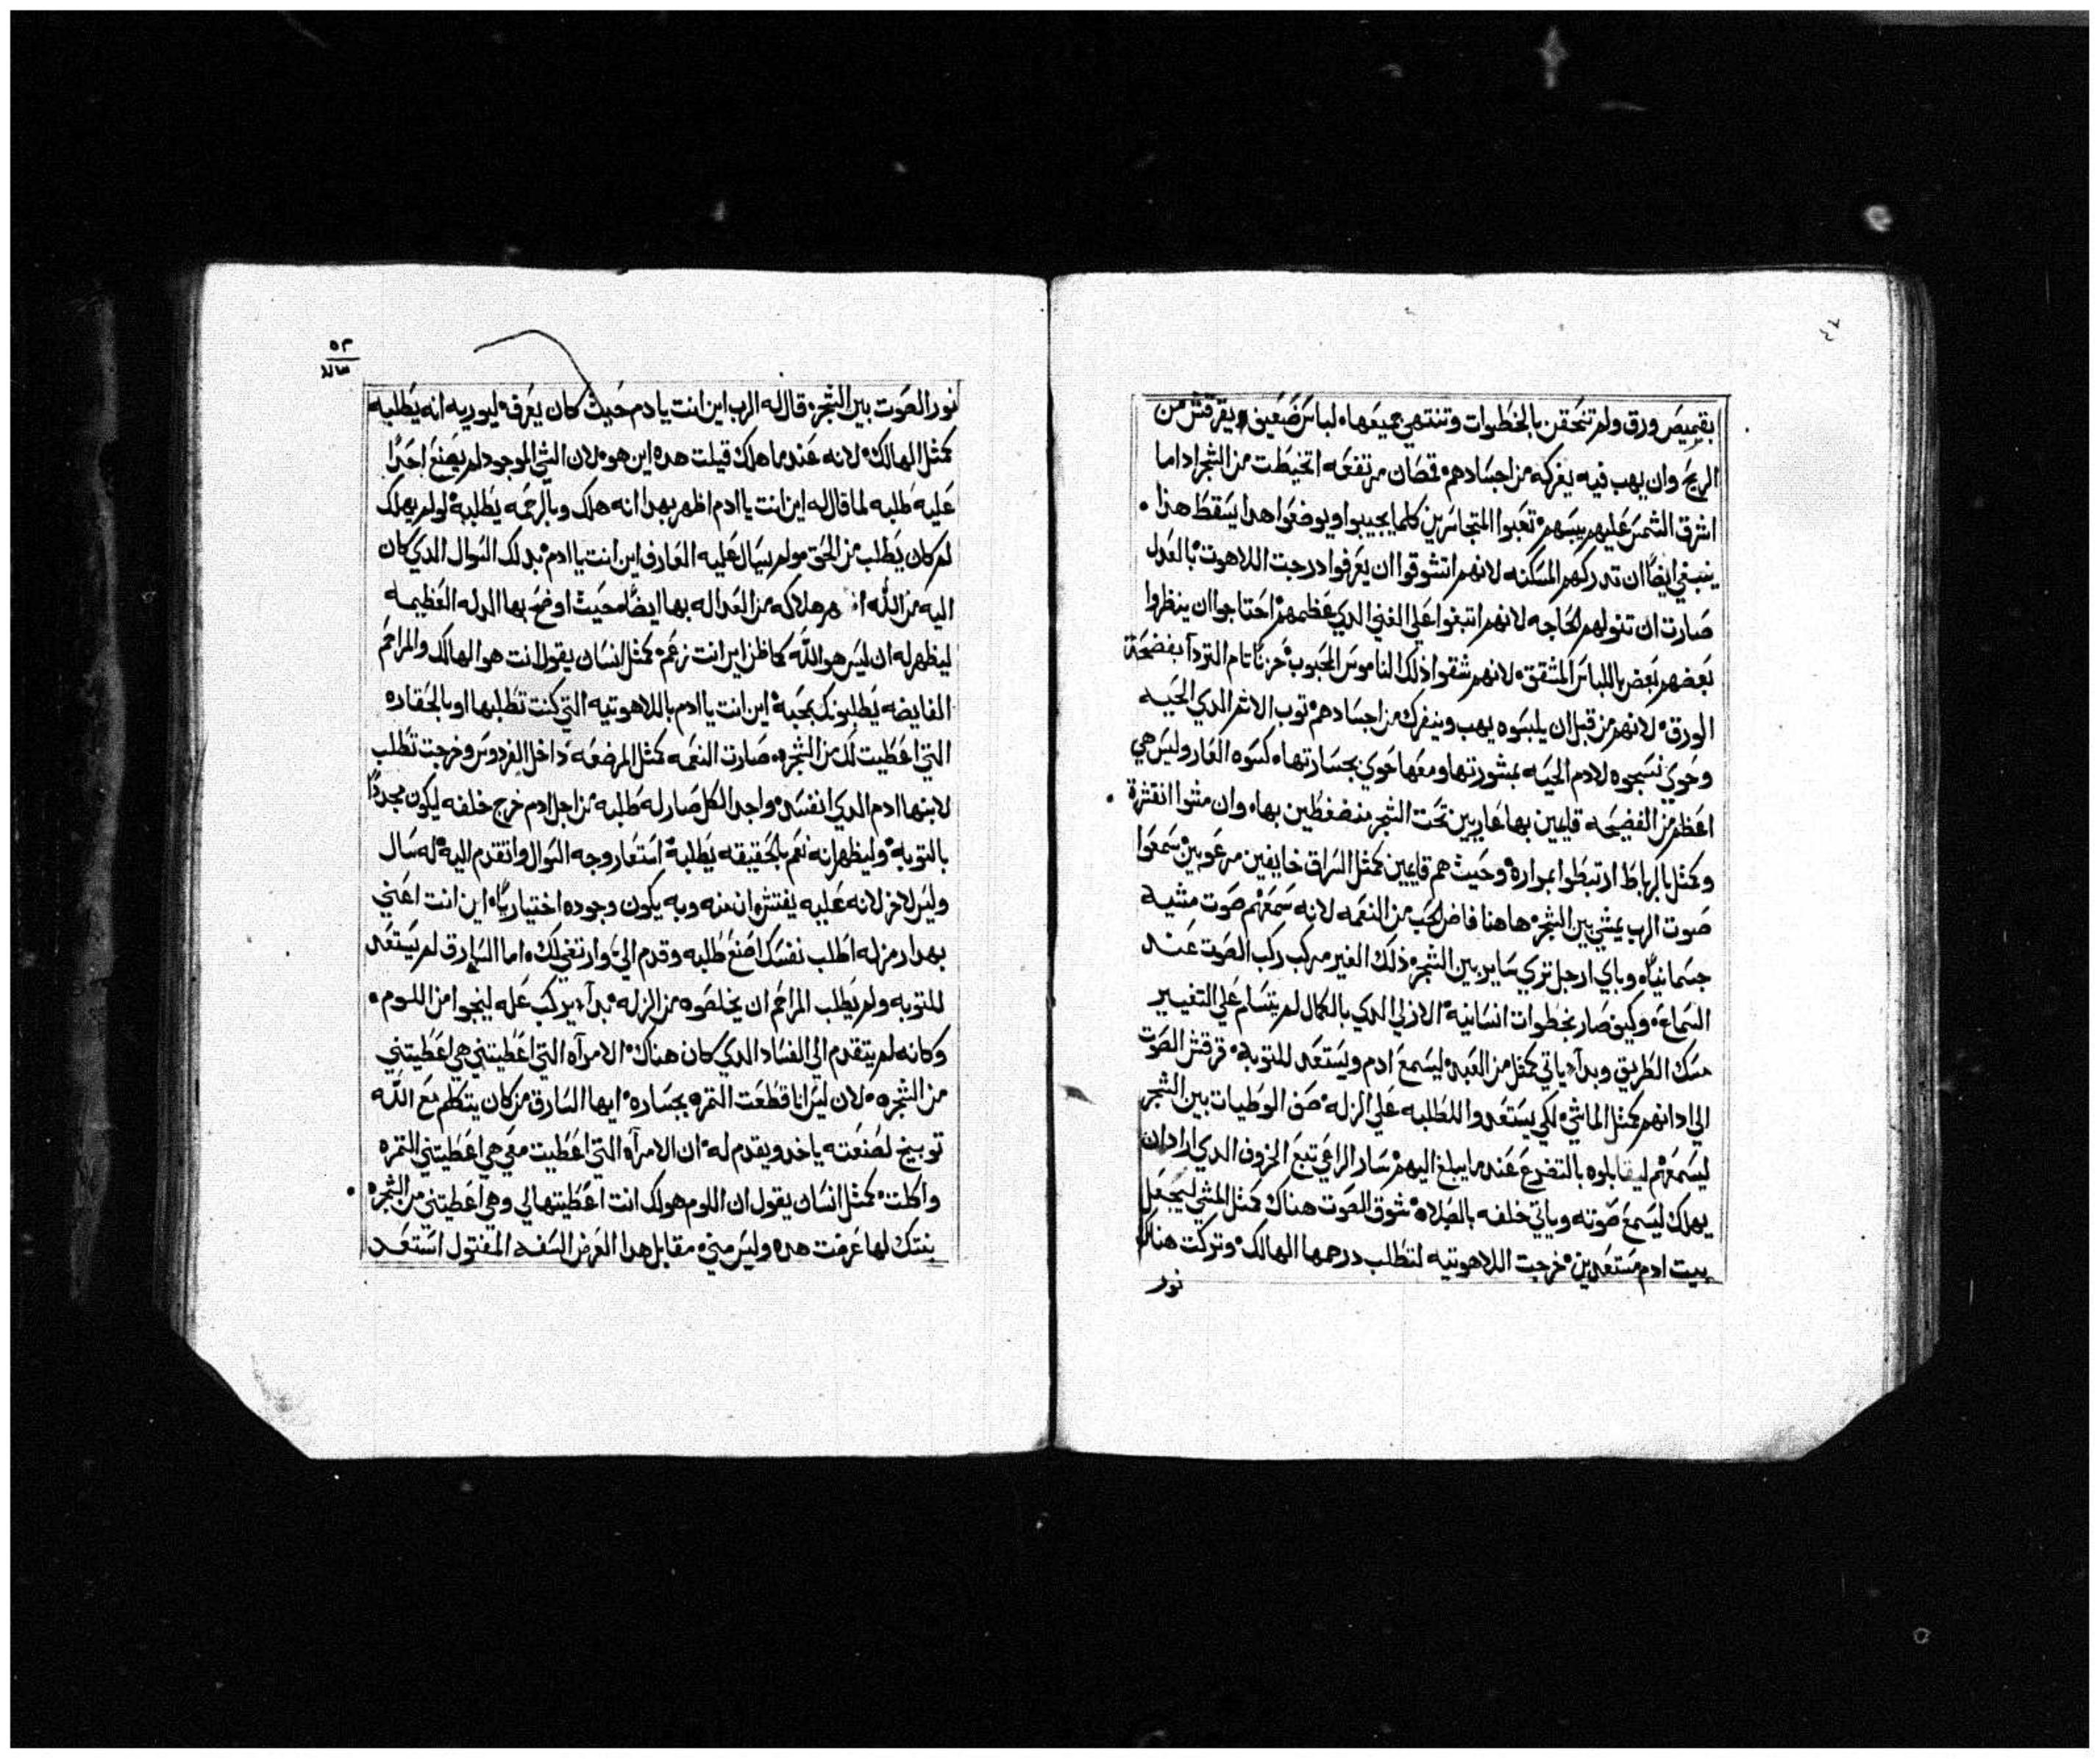 بقميص ورق ولم تتحقن بالخطوات وتنتهي جميعها لباس ضعيف يقرقش من
الريح وان يهب فيه يفركه من اجسادهم قمصان مرتفعه اتخيطت من الشجر اداما
اشرق الشمس عليهم ييبسهم تعبوا المتجاسرين كلما يجيبوا ويوضعوا هدا يسقط هذا
ينبغي ايضًا ان تدركهم المسكنه لانهم اتشوقوا ان يعرفوا درجت اللاهوت بالعدل
صارت ان تنولهم الحاجه لانهم اتبغوا علي الغني الدي عظمهم احتاجوا ان ينظروا
بعضهم بعض باللباس المشقق لانهم شقوا ذلك الناموس المحبوب حزنًا تام التردا بفضحة
الورق لانهم من قبل ان يلبسوه يهب وينفرك من اجسادهم توب الاثم الدي الحيه
وحوي نسجوه لادم الحيه بمشورتها ومعها حوي بجسارتها كسوه العار وليس هي
اعظم من الفضيحه قايمين بها عاريين تحت الشجر منضغطين بها وان مشوا انقثرة
وكمثل بالرباط ارتبطوا بمراره وحيث هم قايمين كمثل السراق خايفين مرعوبين سمعوا
صوت الرب يمشي بين الشجر هاهنا فاض الحب من النعمه لانه سمعهم صوت مشيه
جسمانيًا وباي ارجل تري ساير بين الشجر ذلك الغير مركب ركب الصوت عند
السماع وكيف صار بخطوات انسانية الازلي الدي بالكمال لم يتسام علي التغيير
مسك الطريق وبدأ ياتي كمثل من العبد ليسمع ادم ويستعد للتوبة قرقش الصوت
الي ادانهم كمثل الماشي لكي يستعدوا للطلبه علي الزله صف الوطيات بين الشجر
ليسمعهم ليقابلوه بالتضرع عند ما يبلغ اليهم سار الراعي تبع الخروف الدي اراد ان
يهلك ليسمع صوته وياتي خلفه بالصلاه شوق الصوت هناك كمثل المشي ليجعل
بيت ادم مستعدين خرجت اللاهوتيه لتطلب درهمها الهالك وتركت هناك
نور
٥٣
نور الصوت بين الشجر قال له الرب اين انت يادم حيث كان يعرف ليوريه انه يطلبه
كمثل الهالك لانه عند ما هلك قيلت هده اين هو لان الشي الموجود لم يصنع احدًا
عليه طلبه لما قال له اين انت ياادم اظهر بهدا انه هلك وبالرحمه يطلبه لولم يهلك
لم كان يطلب من الحق مولم يسال عليه العارف اين انت ياادم بدلك السوال الدي كان
اليه من الله هلاكه من العداله بها ايضًا حيث اوضح بها المدله العظيمه
ليظهر له ان ليس هو الله كماظن اين انت زعم كمثل انسان يقول انت هو الهالك والمراحم
الفايضه يطلبونك بمحبة اين انت ياادم باللاهوتيه التي كنت تطلبها او بالحقاره
التي اعطيت لك من الشجره صارت النعمه كمثل المرضعه داخل الفردوس وخرجت تطلب
لابنها ادم الدي انفسد واجد الكل صار له طلبه من اجل ادم خرج خلفه ليكون مجددًا
بالتوبه وليظهر انه نعم بالحقيقه يطلبه استعار وجه السوال واتقدم اليه له سال
وليس لاخر لانه عليه يفتش وان منه وبه يكون وجوده اختياريًا اين انت اعني
بهدا رمز له اطلب نفسك اصنع طلبه وقدم الي وارتغي لك اما السارق لم يستعد
للتوبه ولم يطلب المراحم ان يخلصوه من الزله بدأ يركب عله لينجوا من اللوم
وكانه لم يتقدم الي الفساد الدي كان هناك الامرآه التي اعطيتني هي اعطيتني
من الشجره لان ليس انا قطعت التمره بجساره ايها السارق من كان يتكلم مع الله
توبيخ لصنعته ياخد ويقدم له ان الامرآه التي اعطيت معي هي اعطيتني التمره
واكلت كمثل انسان يقول ان اللوم هو لك انت اعطيتها لي وهي اعطيتني من الشجره
بنتك لها عرفت هده وليس مني مقابل هدا الغرض السفه المفتول استعد